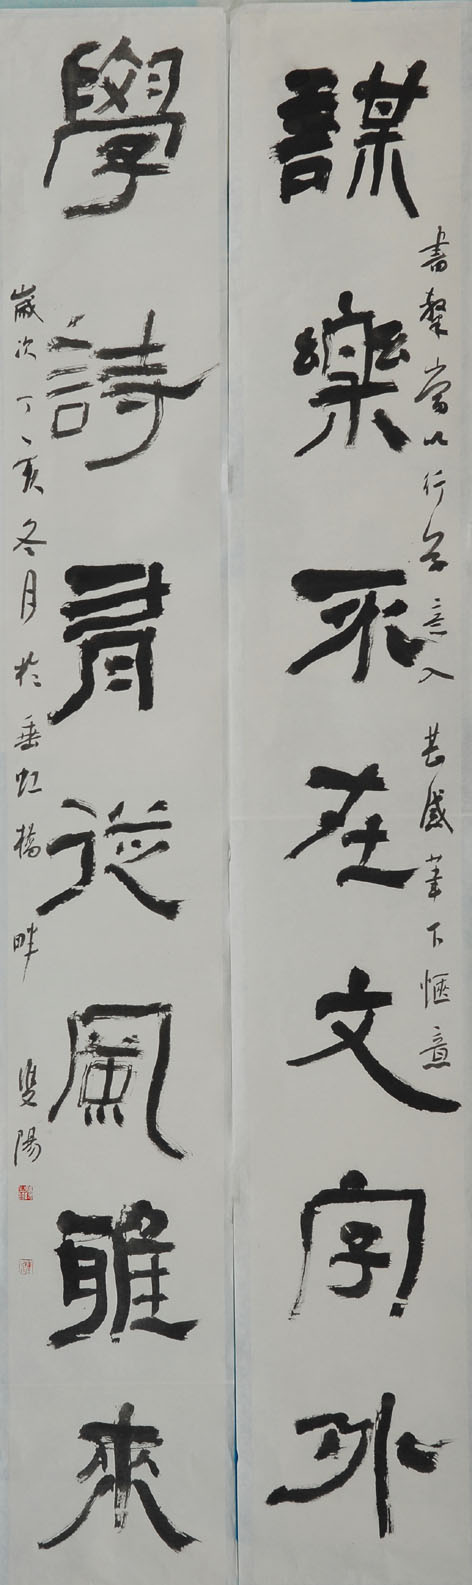 謀樂不在文字外
書隸當以行草意入甚感筆下愜意
學詩從風雅來
歲次丁亥冬月於垂虹橋畔 雙陽